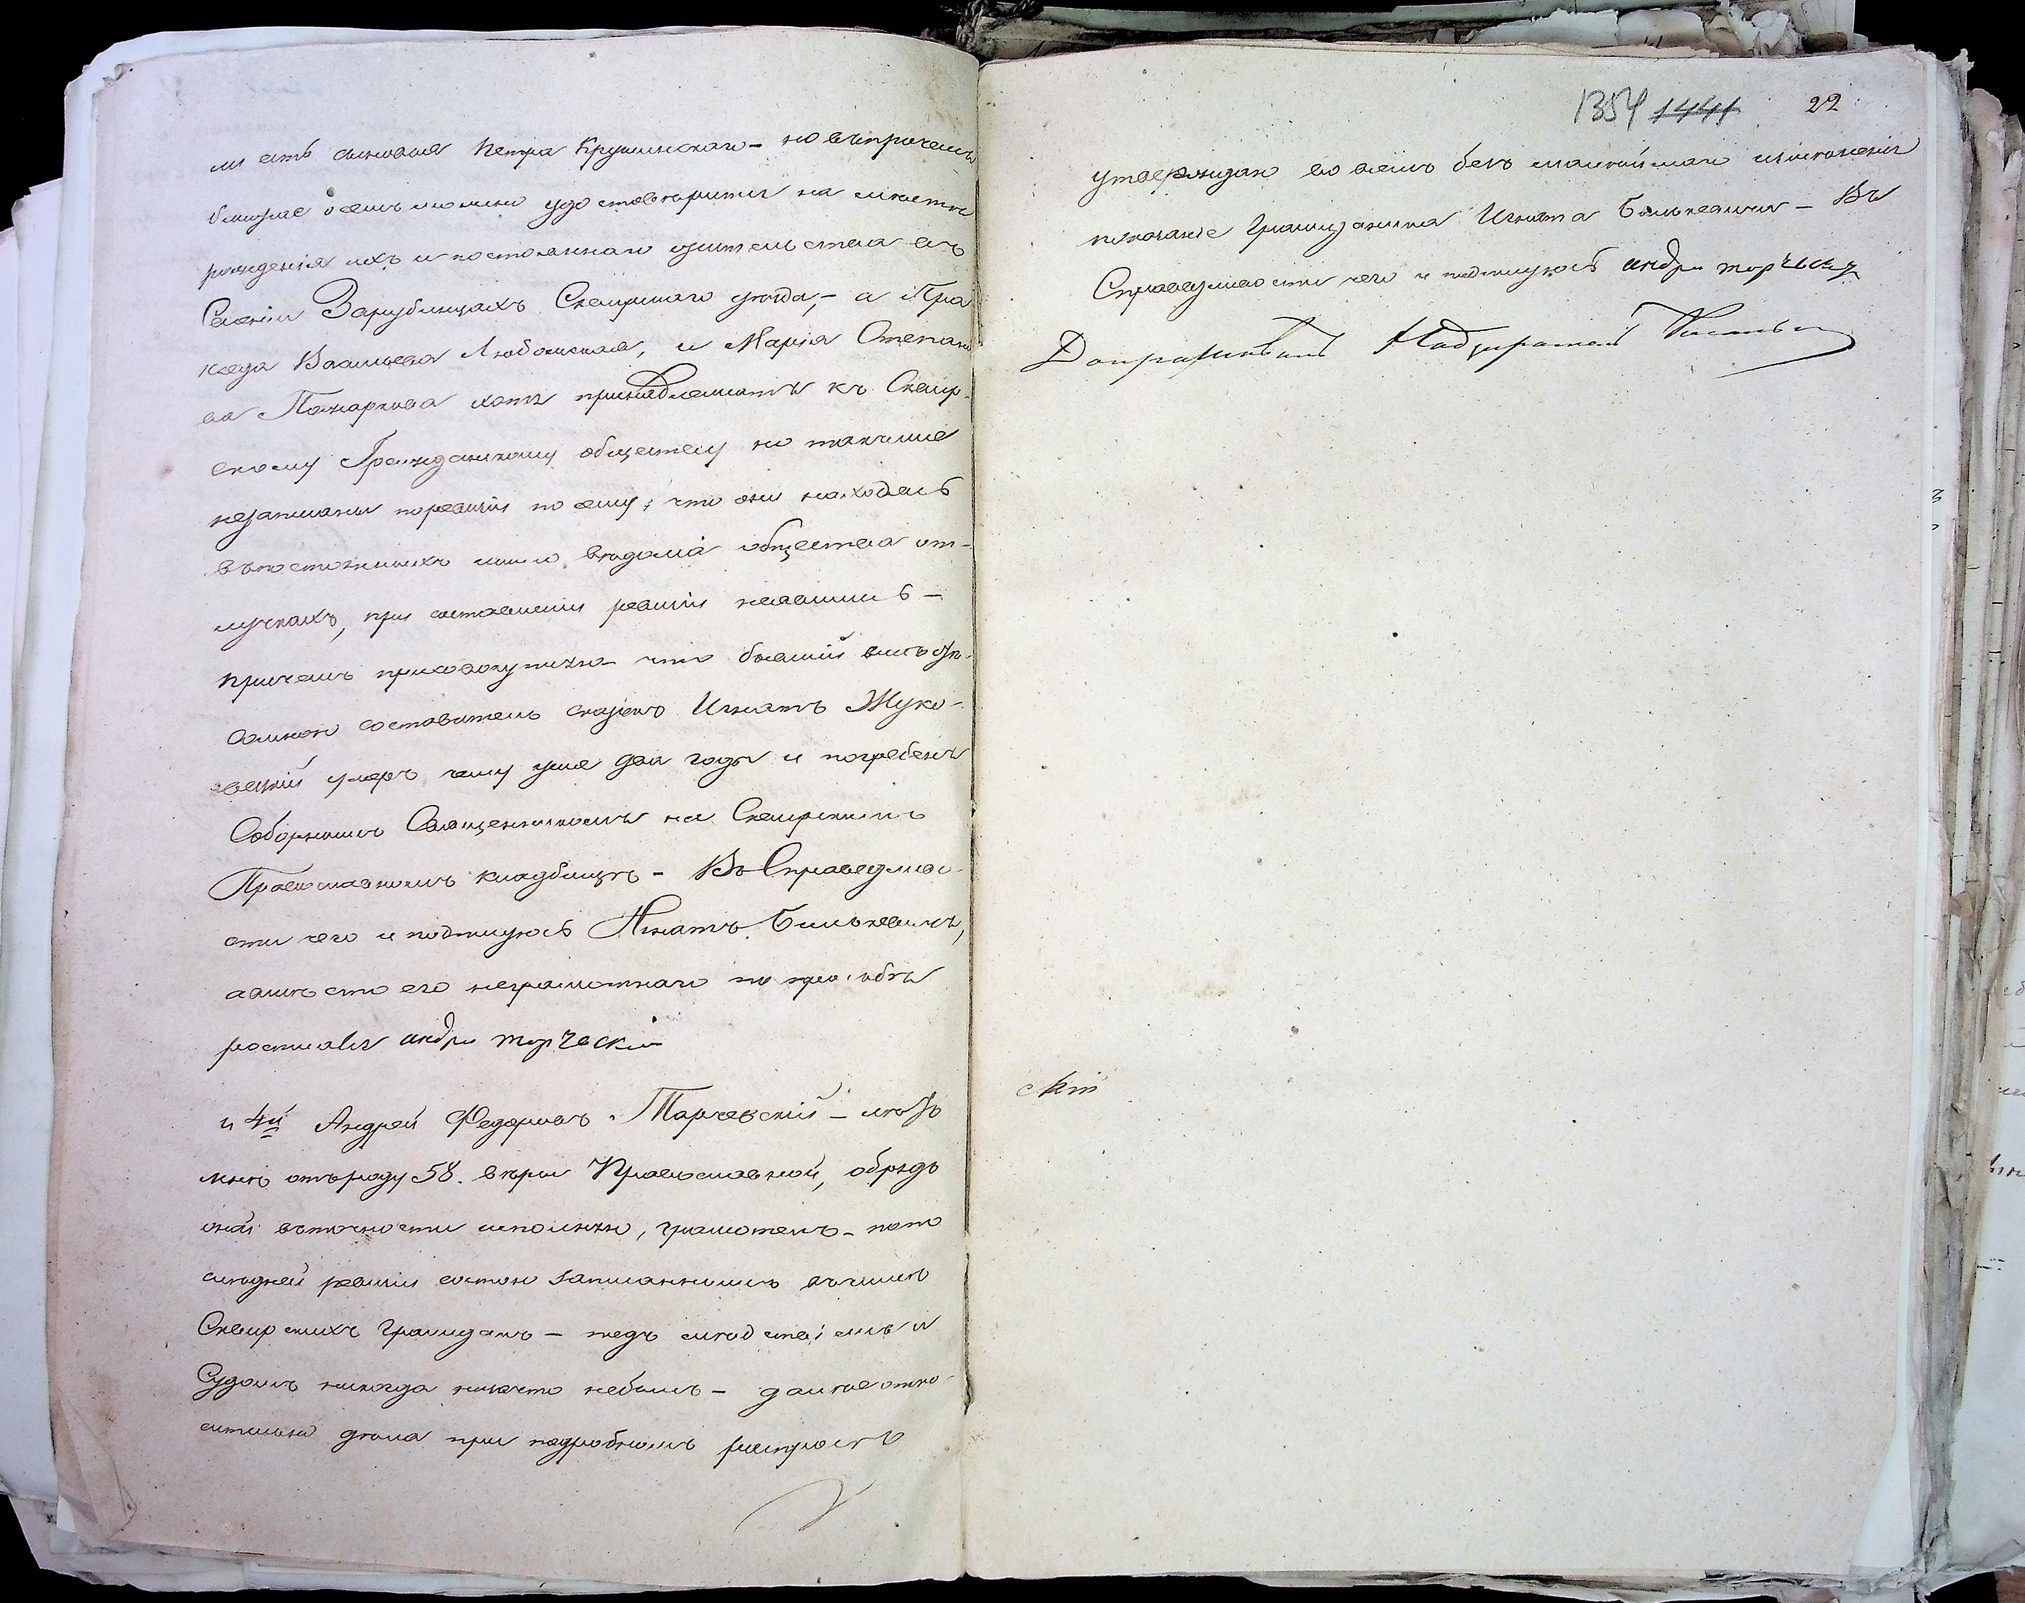 ли есть сыновья Петра Крушинскаго – но въпрочемъ
ближае о семъ можно удостовѣрится на мѣстѣ
рожденія ихъ и постояннаго жительства въ
Селеніи Зарубинцахъ Сквирскаго уѣзда, – а Пра
кседа Васильева Любанская, и Марія Степано
ва Понаркова хотя принадлежатъ къ Сквир-
скому Гражданскому обществу но также
незаписаны поревизіи по сему; что они находясь
въпостоянныхъ безъ вѣдома общества от-
лучкахъ, при составленіи ревизіи неявились –
причемъ присовокупляю что бывшій вмѣстѣ
самною составитель сказокъ Игнатъ Жуко-
вскій умеръ тому уже два года и погребенъ
Соборнымъ Священникомъ на Сквирскомъ
Православномъ кладбищѣ – Въ Справедливо-
сти чего и подпишусь Игнатъ Билькевичъ,
авмѣсто его неграмотнаго по прозьбѣ
росписался андрй торчевскій
и 4й Андрей Федоровъ Тарчевскій – лѣтъ
мнѣ отъроду 58. вѣры Православной, обрядъ
оной въточности исполняю, грамотенъ – попо
слѣдней ревизіи состою записаннымъ въчислѣ
Сквирскихъ Гражданъ – подъ слѣдствіемъ и
Судомъ никогда низачто небылъ – далѣе отно-
сительно дѣла при подробномъ распросѣ
1354 1441 22
утверждаю во всемъ безъ малѣйшаго измѣненія
показаніе Гражданина Игната Билькевича – Въ
Справедливости чего и подпишусь андрй торчевскій
Допрашивалъ Надзиратель